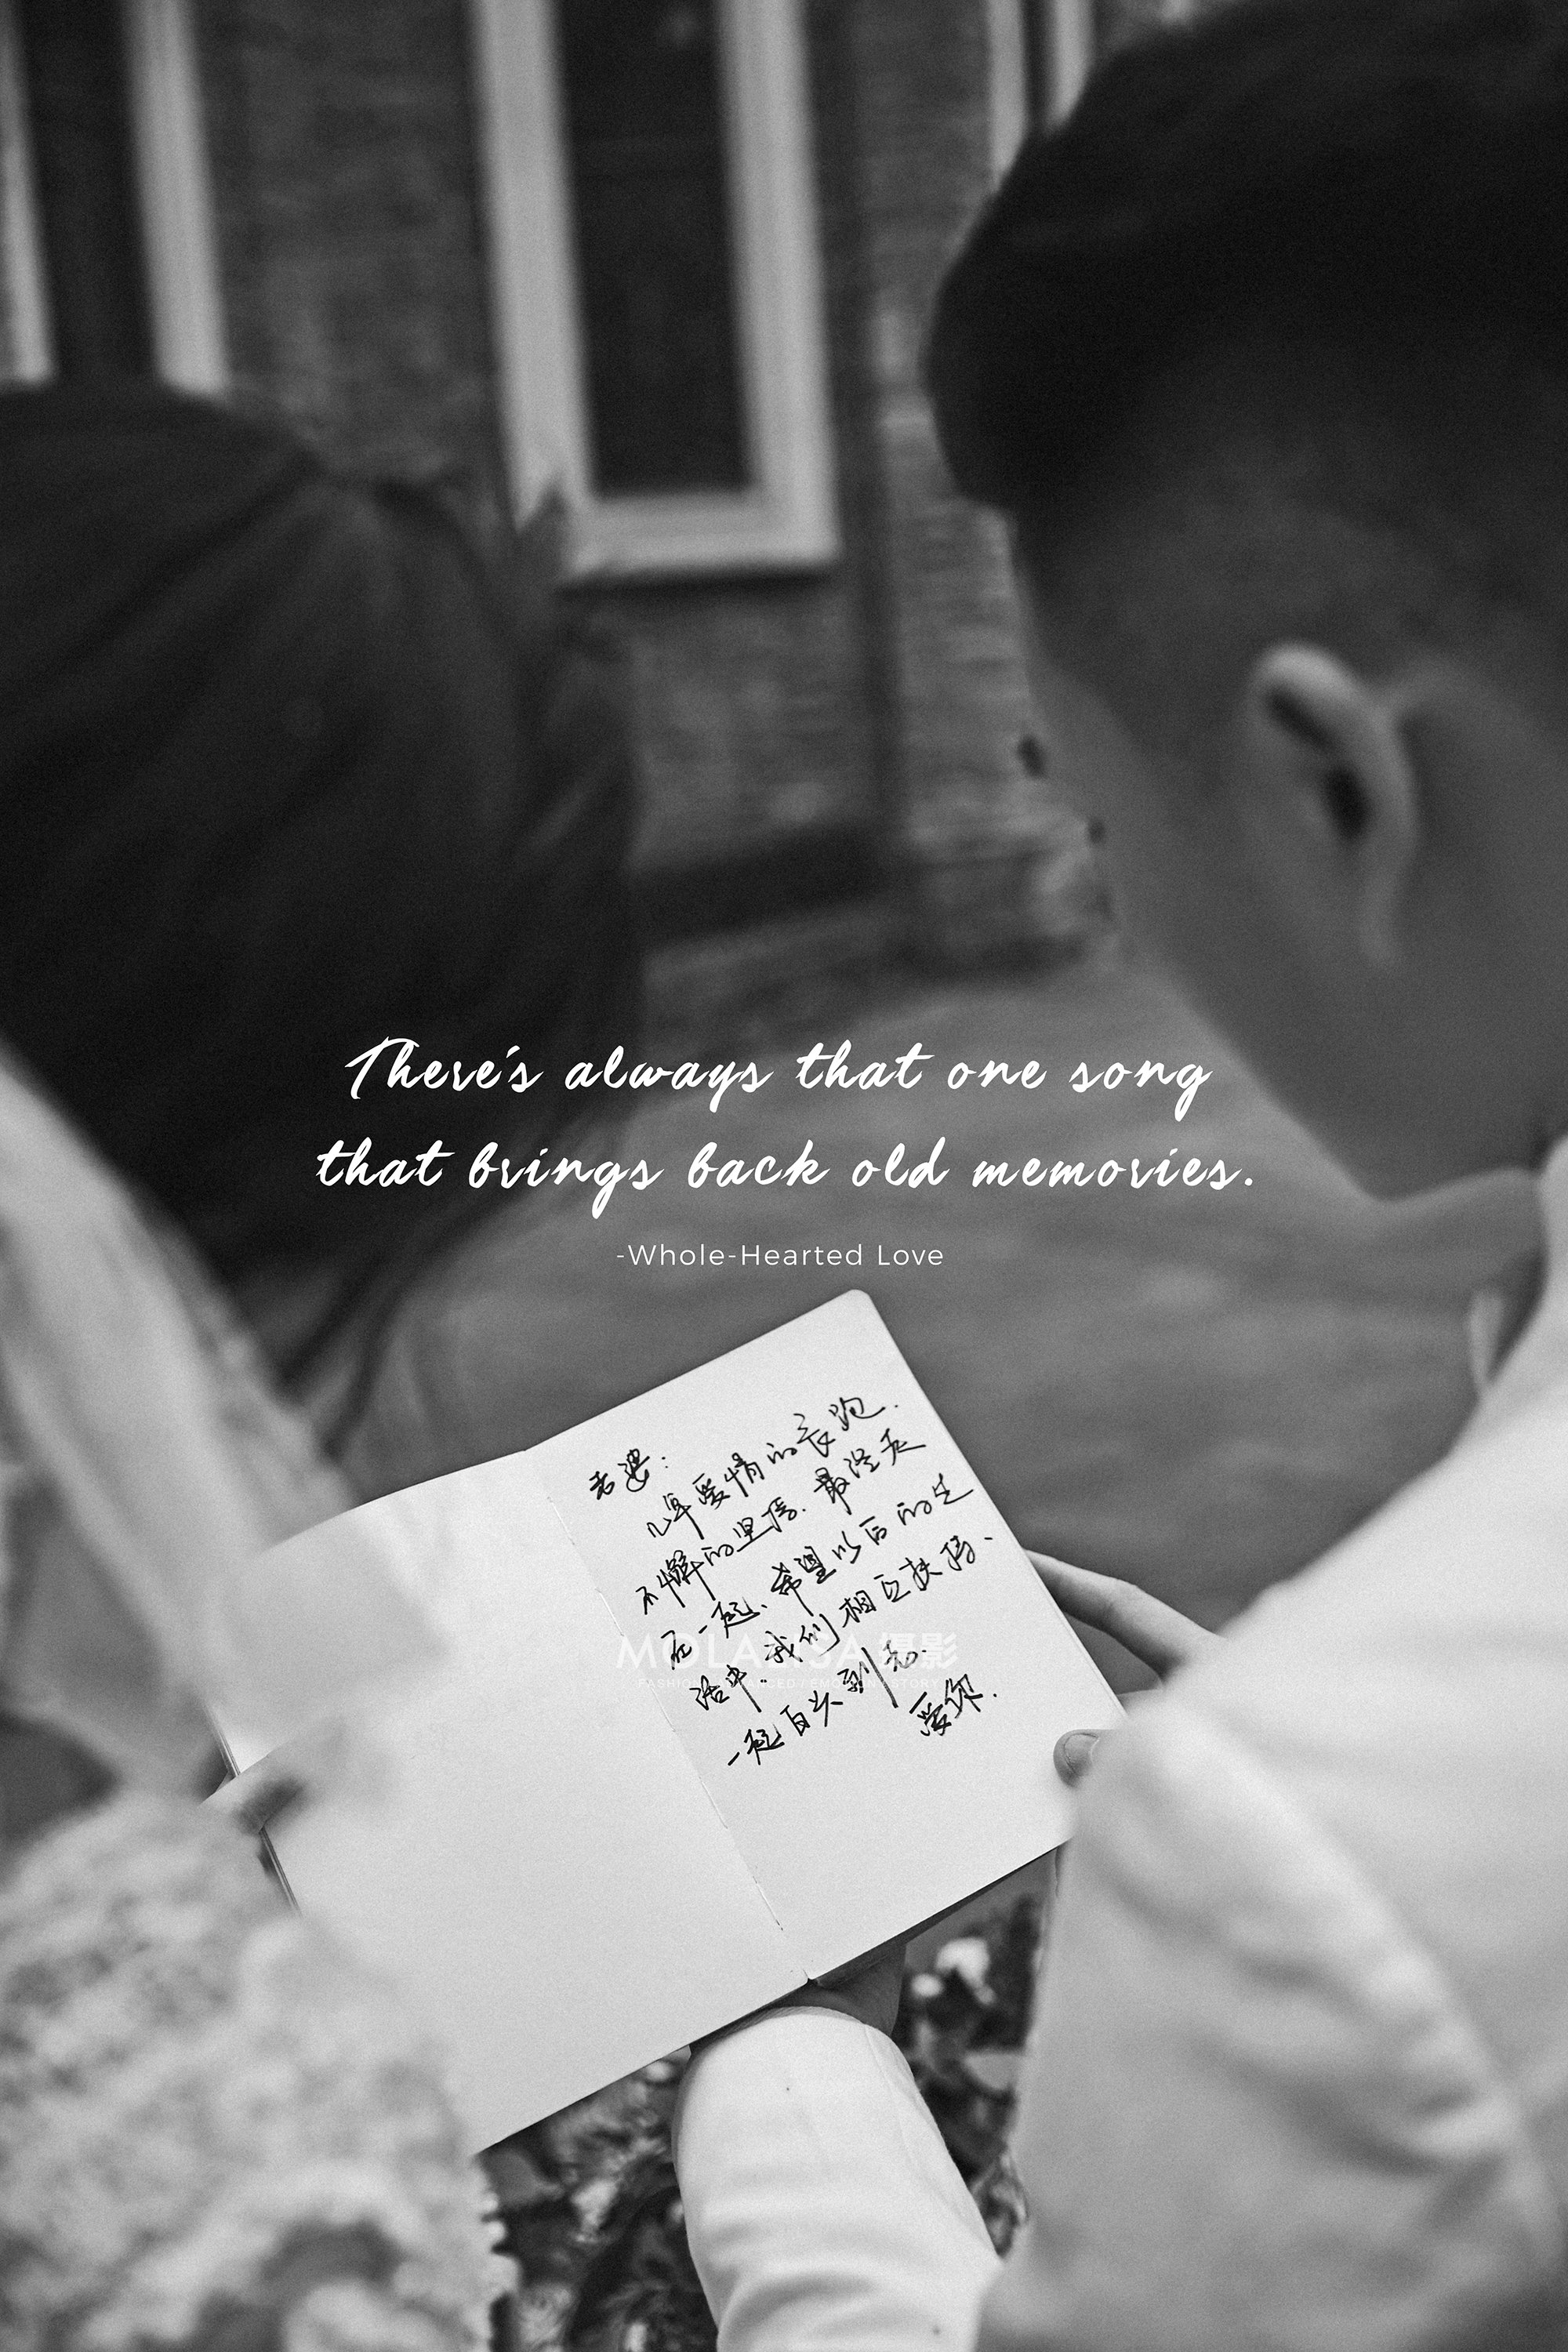 There's always that one song
that brings back old memories.
-Whole-Hearted Love
老婆:
几年爱情的长跑.
不懈的坚信.最终走
在一起、希望以后的生
活中.我们相互扶持、
一起白头到老.
爱你.
MOLALISA 摄影